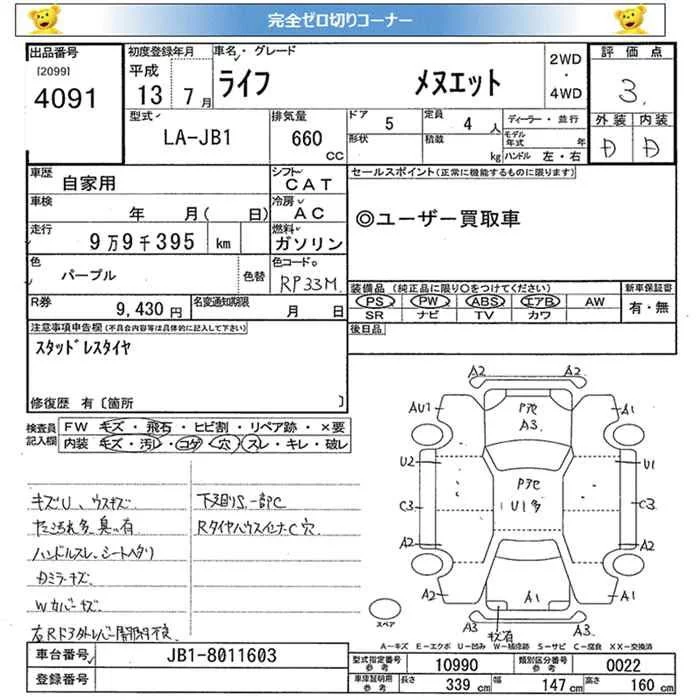 完全ゼロ切りコーナー
出品番号
[2099]
4091
初度登録年月
平成
13 7月
車名・グレード
ライフ メヌエット
2WD
・
4WD
評価点
3.
外装 内装
D D
型式
LA-JB1
排気量
660
CC
ドア 5
定員 4人
形状
積載 kg
ディーラー・並行
モデル年式 年
ハンドル 左・右
車歴
自家用
シフト
CAT
セールスポイント(正常に機能するものに限ります)
◎ユーザー買取車
車検
年 月( 日)
冷房
AC
走行
9万9千395 km
燃料
ガソリン
色
パープル
色替
色コードNo.
RP33M
装備品(純正品に限り○をつけてください)
新車保証書
PS PW ABS エアB AW
有・無
SR ナビ TV カワ
R券
9,430円
名変通知期限
月 日
後日品
注意事項申告欄(不具合内容等は具体的に記入して下さい)
スタッドレスタイヤ
修復歴 有〔箇所 〕
検査員
記入欄
FW キズ・飛石・ヒビ割・リペア跡・×要
内装 キズ・汚レ・コゲ・穴・スレ・キレ・破レ
キズU、ウスキズ
下廻りS.一部PC
RタイヤハウスインナーC穴
ハンドルスレ、シートヘタリ
Dミラーキズ
Wカバーキズ
右RドアOutレバー開閉不良
A2
AU1
A1
Pアセ
A3
A2
U2
U1
Pアセ
U1多
C3
C3
A2
A2
A2
A1
A1
A3
キズ有
A3
スペア
A-キズ E-エクボ U-凹み W-補修跡 S-サビ C-腐食 XX-交換済
車台番号
JB1-8011603
登録番号
型式指定番号
参考
10990
類別区分番号
参考
0022
車庫証明用
参考
長さ 339 cm
幅 147 cm
高さ 160 cm